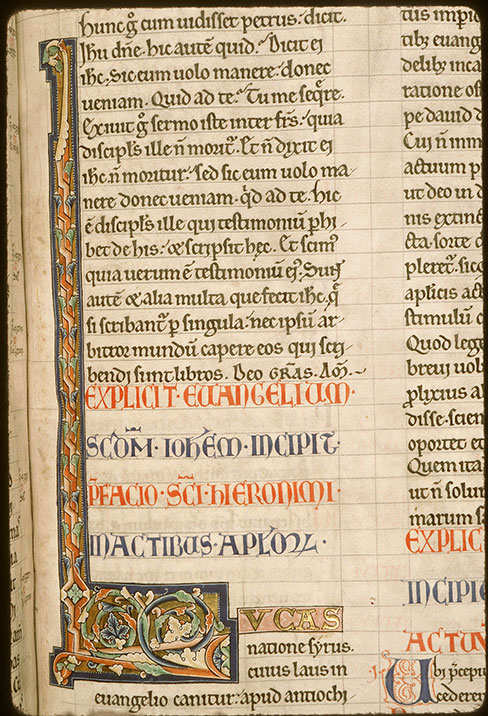 hunc g͛ cum uidisset petrus: dicit.
ihu dn̄e. hic autē quid.᾽ Dicit ei
ihc. Sic eum uolo manere: donec
ueniam. Quid ad te.᾽ Tu me seq̄re.
Exiuit g͛ sermo iste inter fr̄s.᾽ quia
discipl̄s ille n̄ morit᷑. Et n̄ dixit ei
ihc n̄ moritur.᾽ sed sic eum uolo ma-
nere donec ueniam. q̄d ad te. hic
ē discipl̄s ille qui testimoniū ꝑhi-
bet de his.᾽ ⁊ scripsit hęc. Et scim᷒
quia uerum ē testimoniū ei᷒. Sunt
autē ⁊ alia multa que fecit ihc. q̄
si scribant᷑ ꝑ singula.᾽ nec ipsū ar-
bitror mundū capere eos qui scri-
bendi sunt libros. Deo GR̄AS. AM̄.
EXPLICIT·EUANGELIUM·
SCD̄M·IOH̄EM·INCIPIT·
P̄FACIO·SC̄I·HIERONIMI·
IN ACTIBUS·APLŌꝜ·
LUCAS
natione syrus.
cuius laus in
euangelio canitur.᾽ apud antiochi-
tus impie
tibꝫ euang
delibꝫ inca
ratione ost
pe dauid d
Cui n̄ inm
actuum p
ut deo in d
nis extinc
cta. sorte
pleret᷑. sic
apl̄icis act
stimulū c
Quod lege
breui uol
ꝓlixius al
disse. scien
oportet et
Quem ita
ut n̄ solu
marum s
EXPLIC
INCIPIE
ACTUU
Ubi p̄cept
cederen